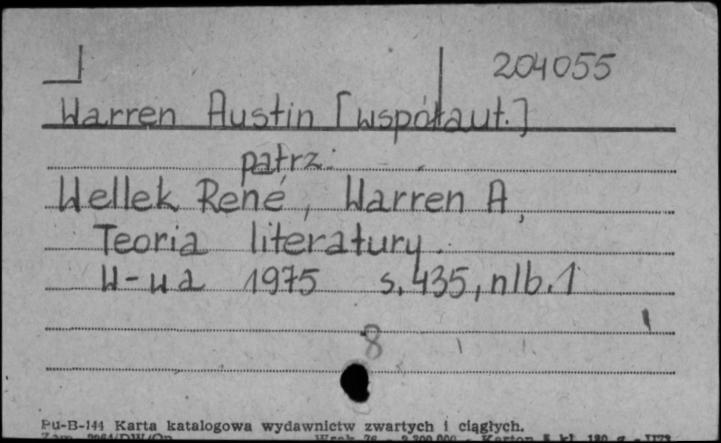 204055
Warren Austin [współaut.]
patrz:
Wellek René, Warren A,
Teoria literatury.
W-wa 1975 s. 435, nlb. 1
8
Pu-B-144 Karta katalogowa wydawnictw zwartych i ciągłych.